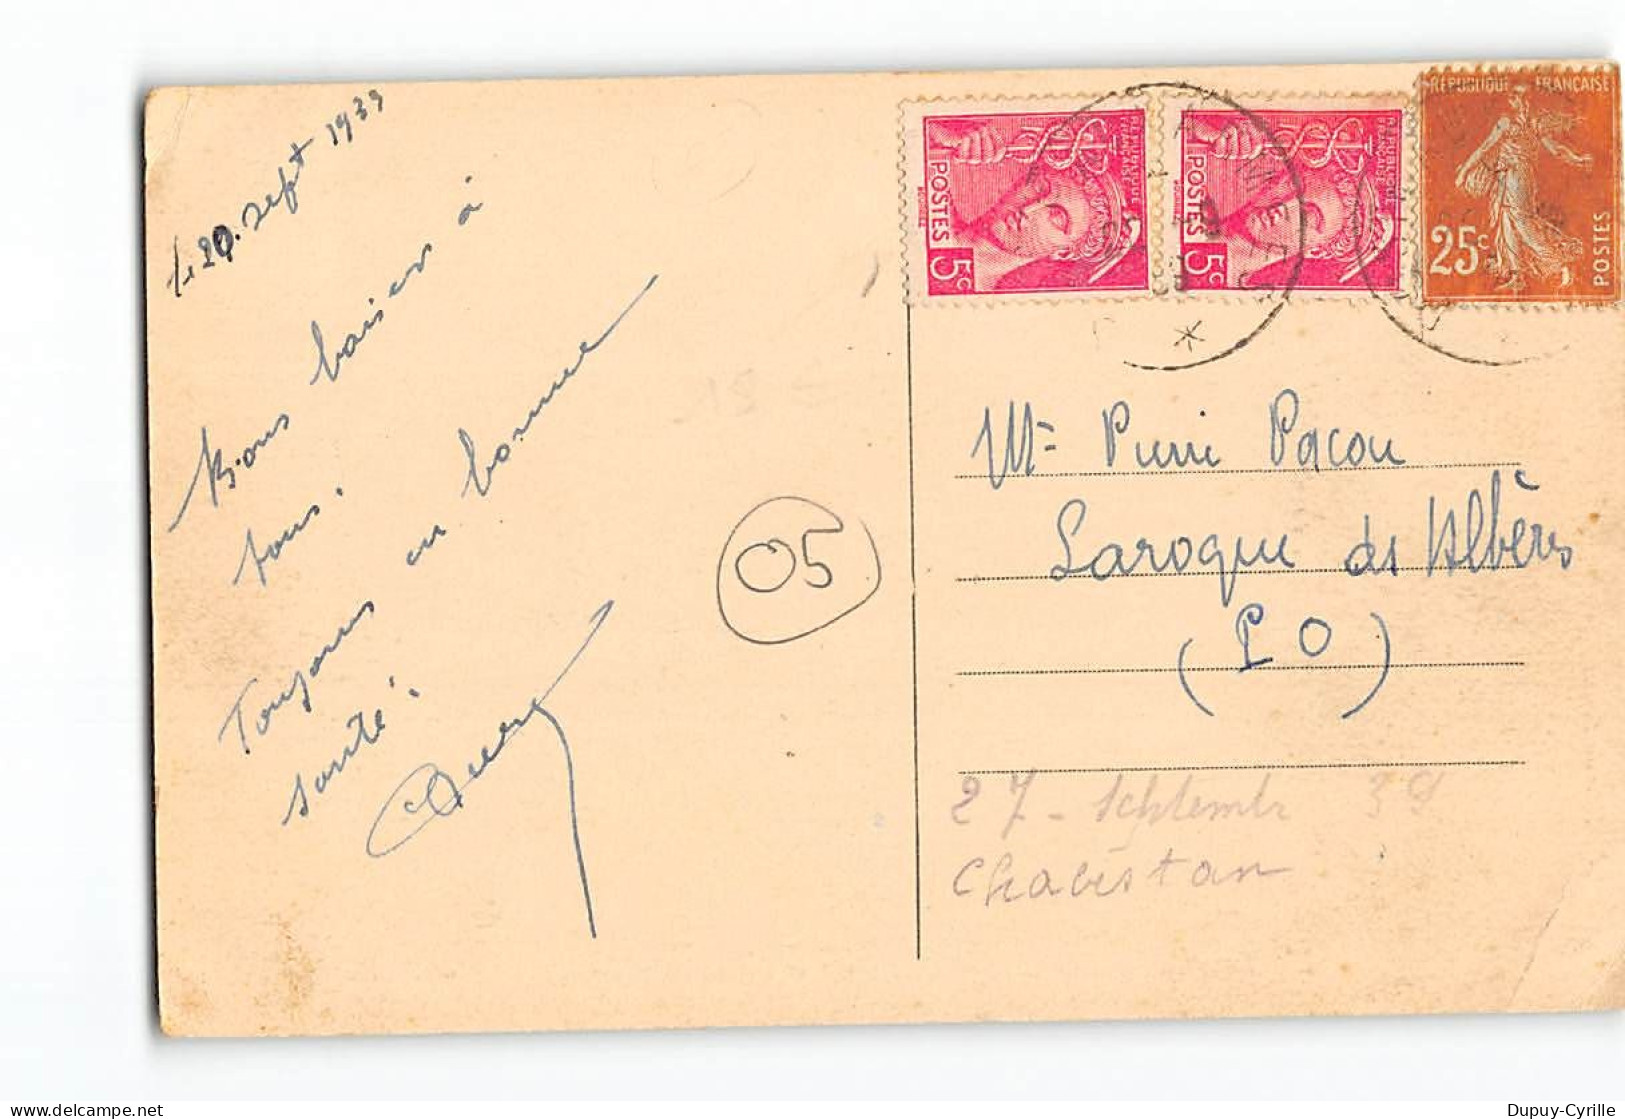 20. sept 1939
Bons baisers à
tous.
Toujours en bonne
santé.
RÉPUBLIQUE FRANÇAISE
POSTES
5c
RÉPUBLIQUE FRANÇAISE
POSTES
5c
RÉPUBLIQUE FRANÇAISE
25c
POSTES
05
Mr Pierre Pacou
Laroque des Albères
(P O)
27 - Septembre 39
Dupuy-Cyrille